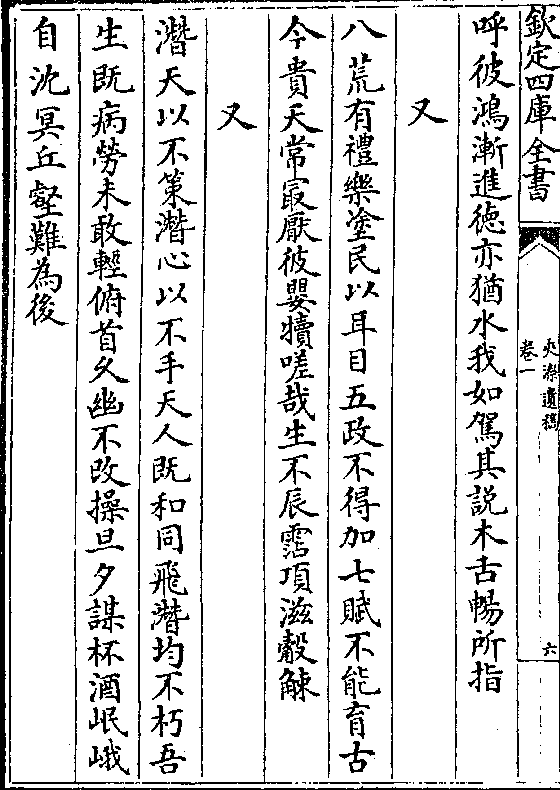 欽定四庫全書
夾漈遺稿
卷一
六
呼彼鴻漸進徳亦猶水我如駕其説木舌暢所指
又
八荒有禮樂塗民以耳目五政不得加七賦不能育古
今貴天常㝡厭彼嬰犢嗟哉生不辰霑項滋觳觫
又
濳天以不策濳心以不手天人既和同飛濳均不朽吾
生既病勞未敢輕俯首久幽不改操旦夕謀杯酒岷峨
自沈冥丘壑難為後